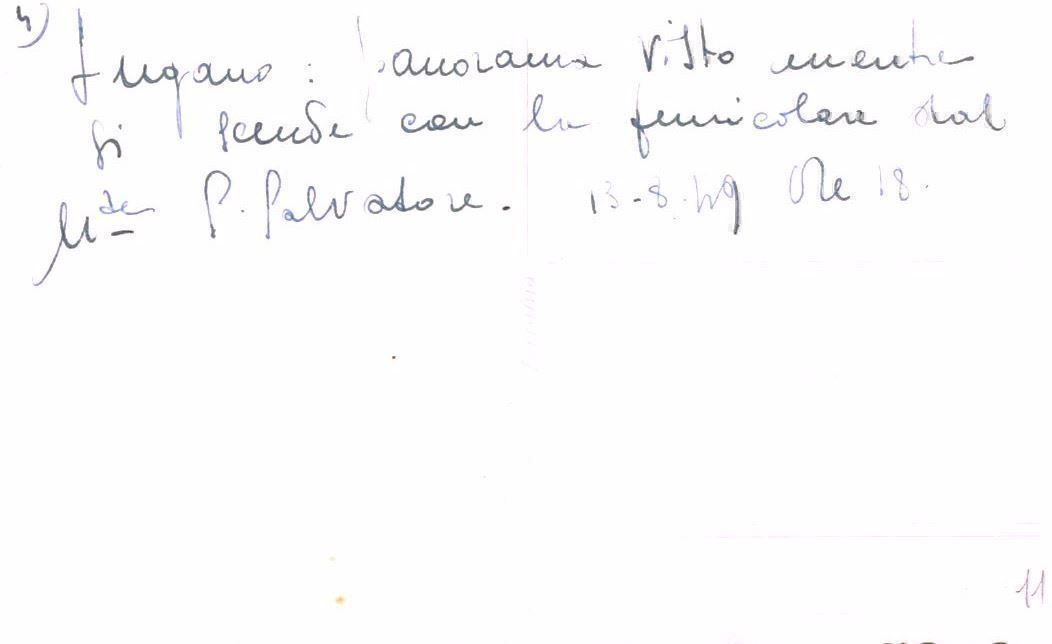 4)
Lugano: Panorama visto mentre
si scende con la funicolare dal
M.te S. Salvatore. 13-8-49 Ore 18.
11